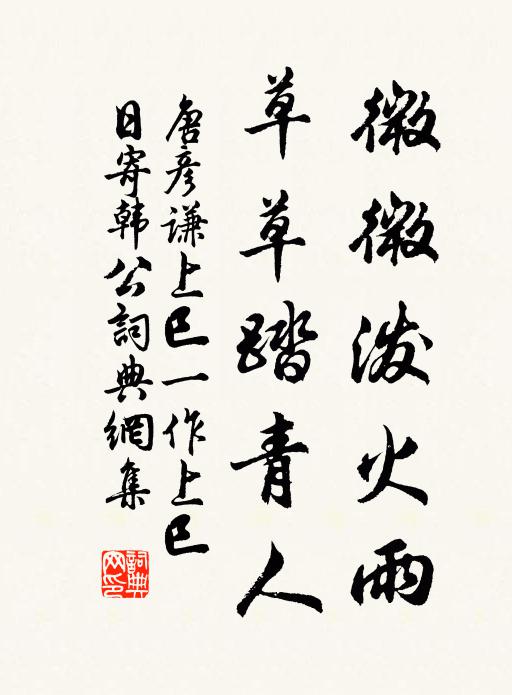 微微泼火雨
草草踏青人
唐彦謙上巳一作上巳
日寄韩公詞典網集
詞典
网印